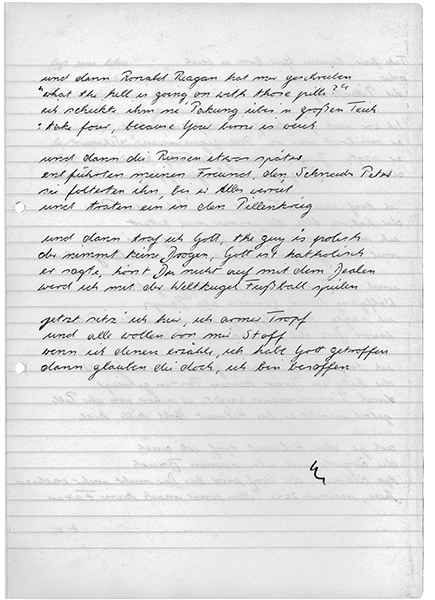 und dann Ronald Reagan hat mir geschrieben
"what the hell is going on with those pills?"
ich schickte ihm ne Pakung über'n großen Teich
: take four, because Your bone is weich
und dann die Russen etwas später
entführten meinen Freund, den Schneider Peter
sie folterten ihn bis er Alles verriet
und traten ein in den Pillenkrieg
und dann traf ich Gott, the guy is polish
der nimmt keine Drogen, Gott ist katholisch
er sagte, hörst Du nicht auf mit dem Dealen
werd ich mit der Weltkugel Fußball spielen
jetzt sitz' ich hier, ich armer Tropf
und alle wollen von mir Stoff
wenn ich denen erzähle, ich habe Gott getroffen
dann glauben die doch, ich bin besoffen